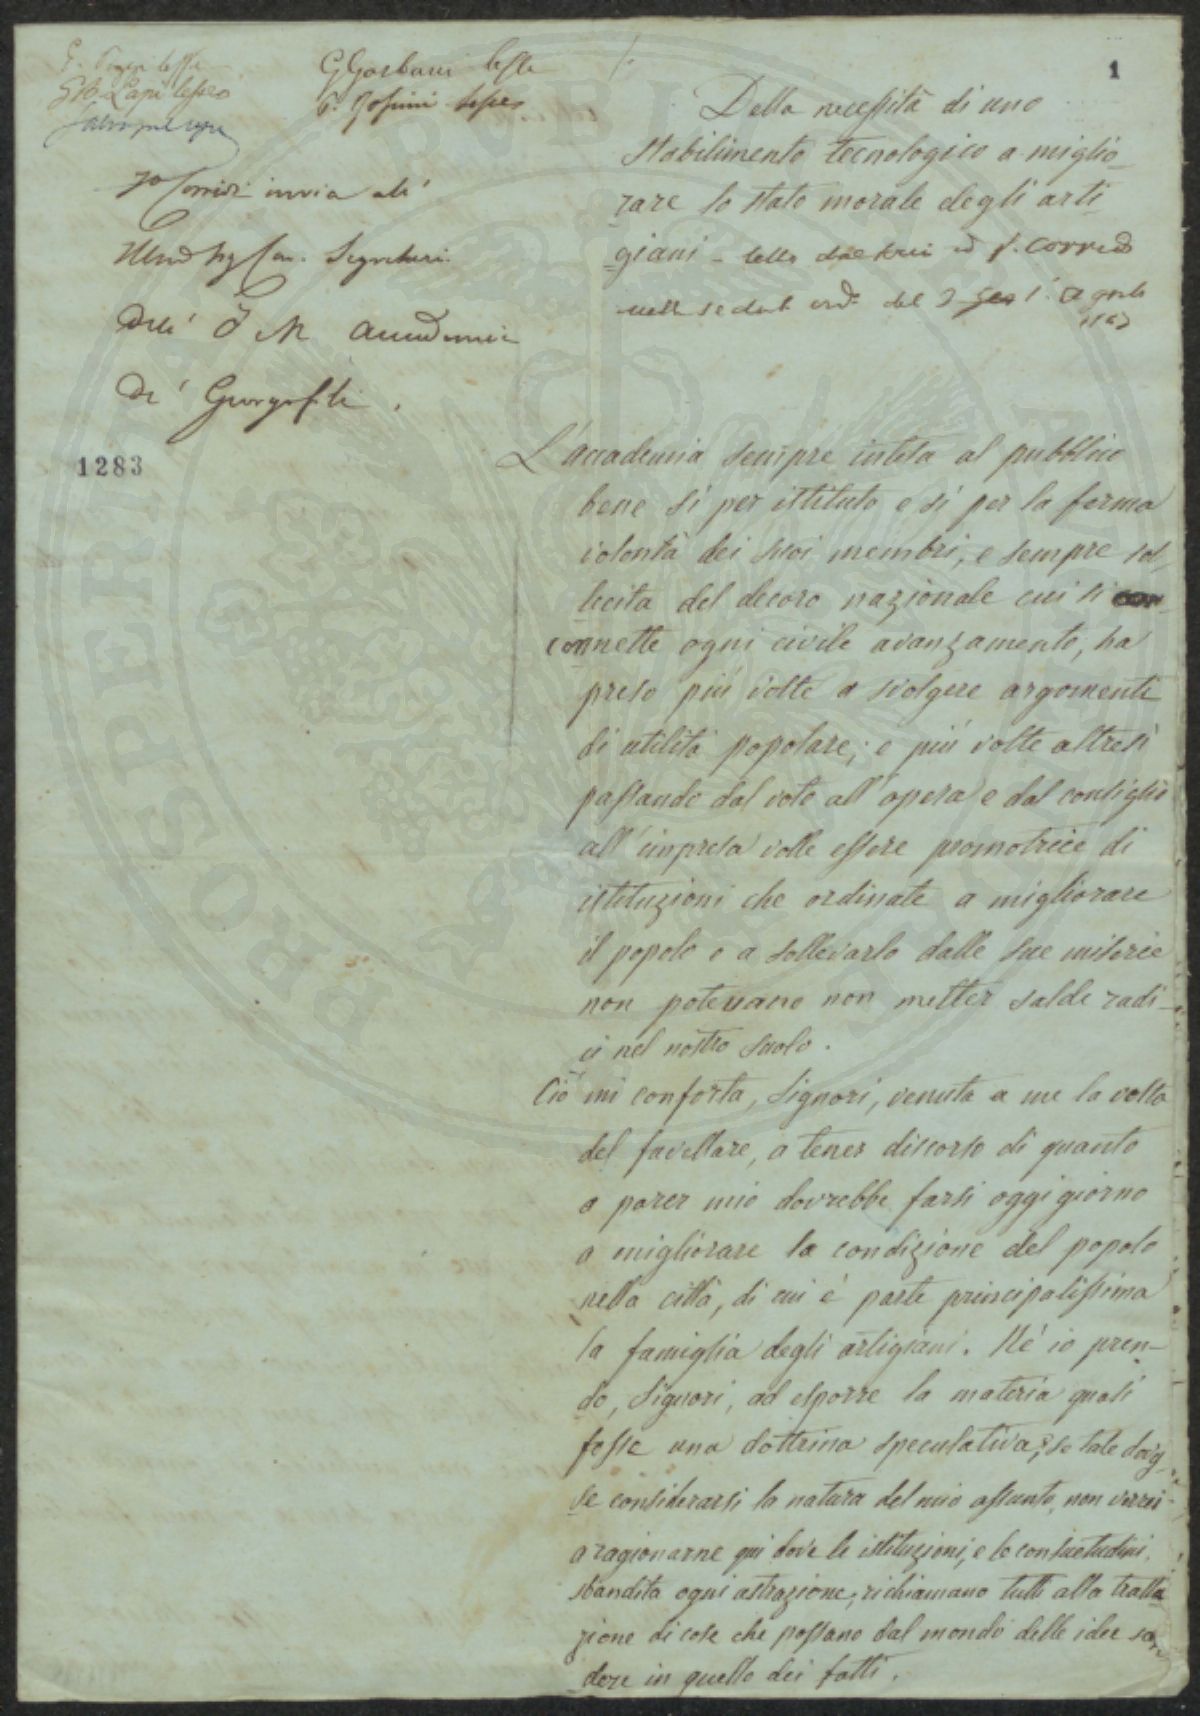 1
G Garbarri lesse
Della necessità di uno
Stabilimento tecnologico a miglio-
rare lo stato morale degli arti-
giani -
invia al
Segretari
dell' I e R Accademia
de' Georgofili.
1283
L'accademia sempre intesa al pubblico
bene sì per istituto e sì per la ferma
volontà dei suoi membri, e sempre sol-
lecita del decoro nazionale cui si
connette ogni civile avanzamento, ha
preso più volte a svolgere argomenti
di utilità popolare; e più volte altresì
passando dal voto all'opera e dal consiglio
all'impresa volle essere promotrice di
istituzioni che ordinate a migliorare
il popolo o a sollevarlo dalle sue miserie
non potevano non metter salde radi-
ci nel nostro suolo.
Ciò mi conforta, Signori, venuta a me la volta
del favellare, a tener discorso di quanto
a parer mio dovrebbe farsi oggi giorno
a migliorare la condizione del popolo
nella città, di cui è parte principalissima
la famiglia degli artigiani. Nè io pren-
do, Signori, ad esporre la materia quasi
fosse una dottrina speculativa; se tale doves-
se considerarsi la natura del mio assunto, non verrei
a ragionarne qui dove le istituzioni, e le consuetudini,
sbandita ogni astrazione, richiamano tutti alla tratta-
zione di cose che possano dal mondo delle idee scen-
dere in quello dei fatti.
PROSPERITÀ PUBBLICA